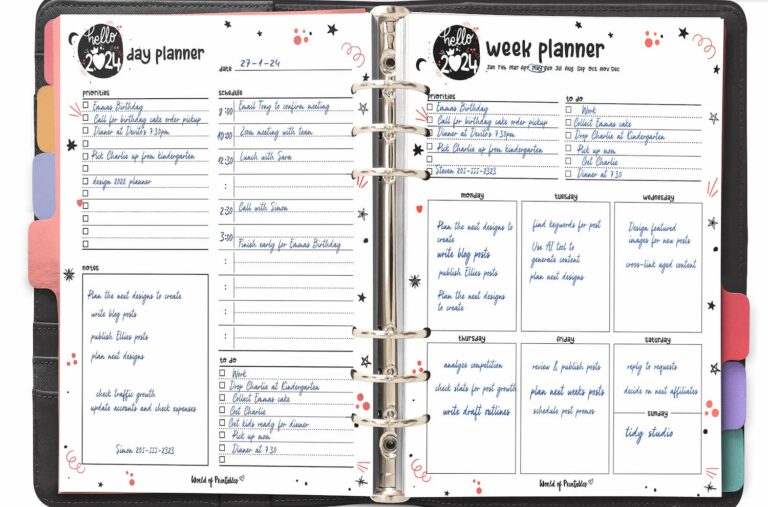 hello
2024
day planner
date 27-1-24
priorities
Emmas Birthday
Call for birthday cake order pickup
Dinner at Devito's 7.30pm
Pick Charlie up from kindergarten
design 2022 planner
notes
Plan the next designs to create
write blog posts
publish Ellies posts
plan next designs
check traffic growth
update accounts and check expenses
Simon 201-111-2323
schedule
8:00 Email Tony to confirm meeting
10:00 Zoom meeting with team
12:30 Lunch with Sara
:
2:30 Call with Simon
3:00
Finish early for Emmas Birthday
:
:
:
:
to do
Work
Drop Charlie at Kindergarten
Collect Emmas cake
Get Charlie
Get kids ready for dinner
Pick up mom
Dinner at 7.30
World of Printables
hello
2024
week planner
Jan Feb Mar Apr May Jun Jul Aug Sep Oct Nov Dec
priorities
Emmas Birthday
Call for birthday cake order pickup
Dinner at Devito's 7.30pm
Pick Charlie up from kindergarten
Steven 201-111-2323
to do
Work
Collect Emmas cake
Drop Charlie at Kindergarten
Pick up mom
Get Charlie
Dinner at 7.30
monday
Plan the next designs to
create
write blog posts
publish Ellies posts
Plan the next designs
to create
tuesday
find keywords for post
Use AI tool to
generate content
plan next designs
wednesday
Design featured
images for new posts
cross-link aged content
thursday
analyze competition
check stats for post growth
write draft outlines
friday
review & publish posts
plan next weeks posts
schedule post promos
saturday
reply to requests
decide on next affiliates
sunday
tidy studio
World of Printables